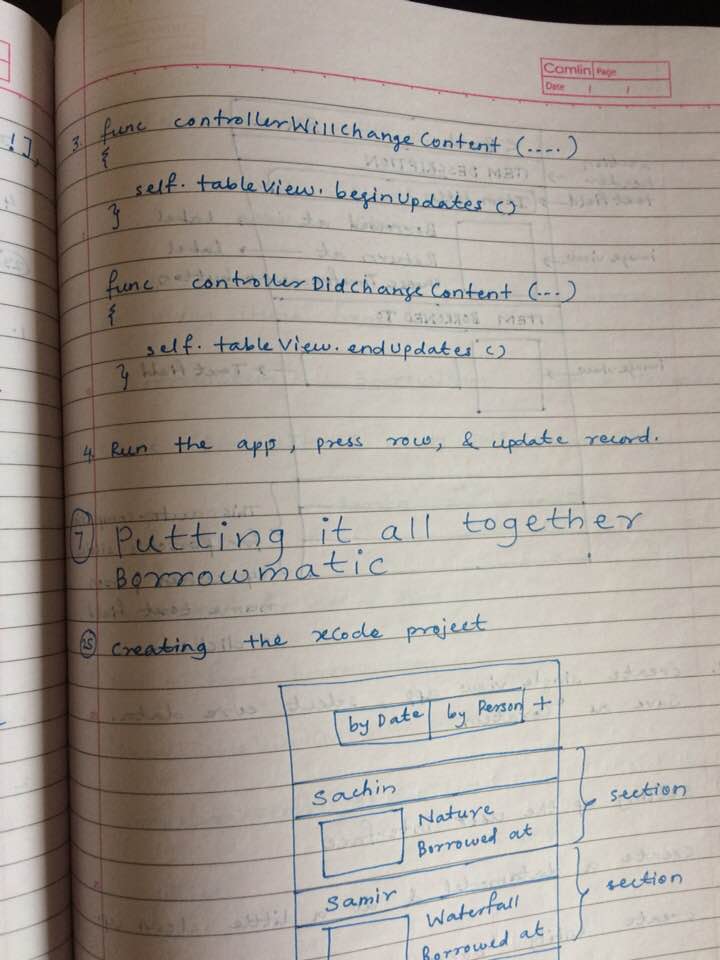 Camlin Page
Date / /
!],
3. func controllerWillChangeContent (....)
{
self. tableView. beginUpdates ()
}
func controllerDidChangeContent (...)
{
self. tableView. endUpdates ()
}
4. Run the app, press row, & update record.
7 Putting it all together
Borrowmatic
25 Creating the xcode project
by Date by Person +
Sachin
Nature
Borrowed at
section
Samir
Waterfall
Borrowed at
section